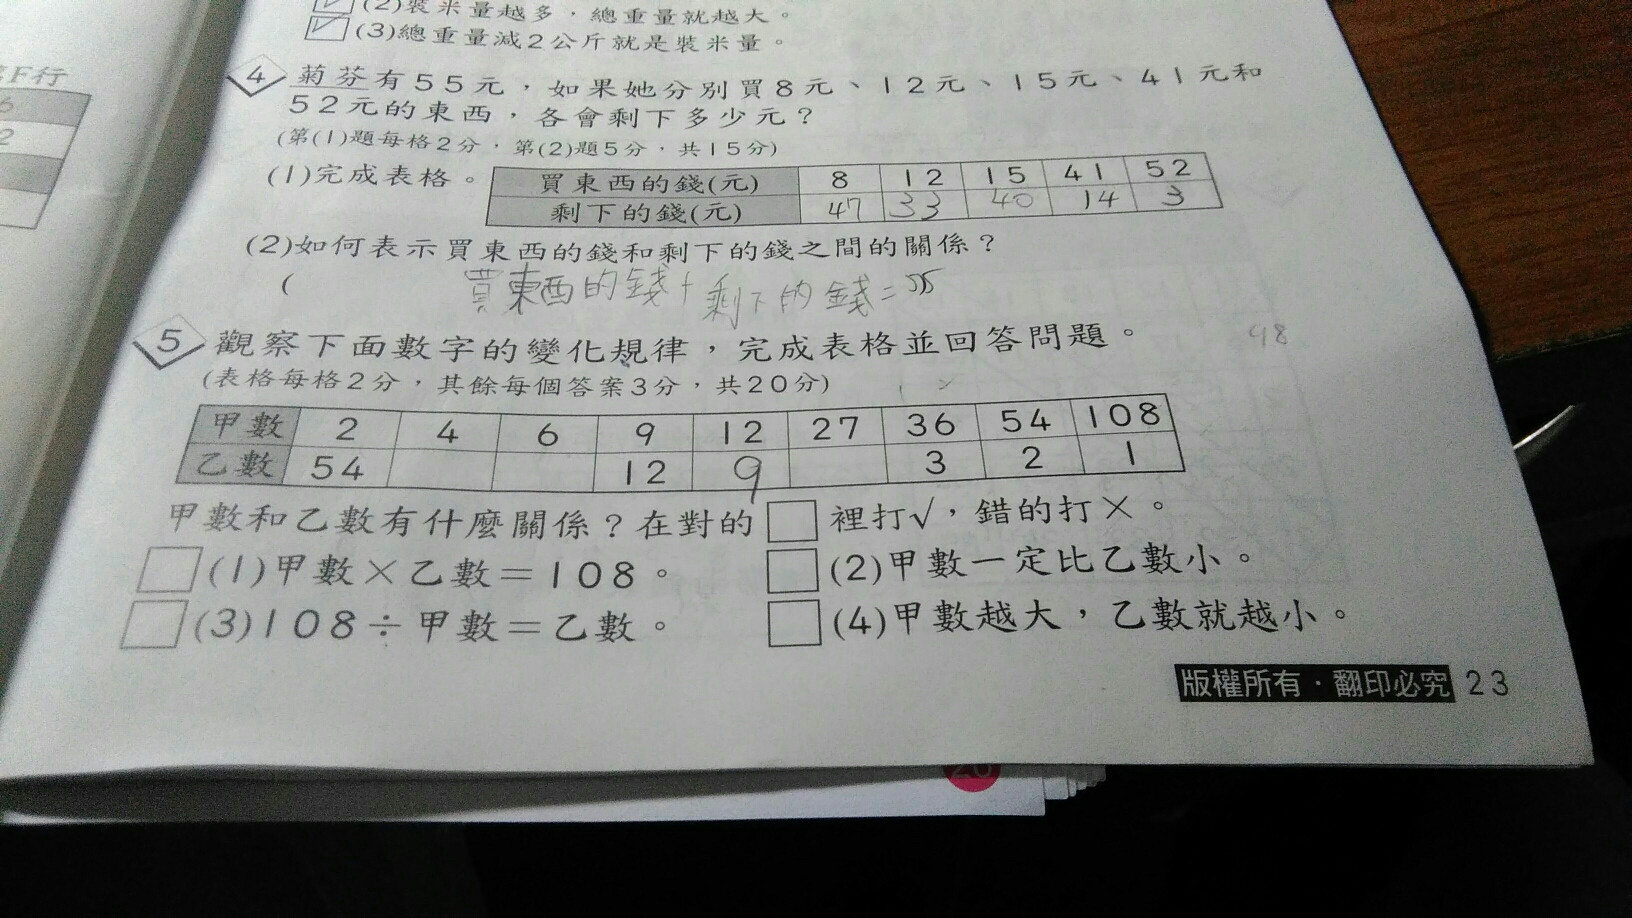 (2)裝米量越多，總重量就越大。
(3)總重量減2公斤就是裝米量。
F行
6
2
4 菊芬有55元，如果她分別買8元、12元、15元、41元和
52元的東西，各會剩下多少元？
(第(1)題每格2分，第(2)題5分，共15分)
(1)完成表格。
買東西的錢(元) 8 12 15 41 52
剩下的錢(元) 47 33 40 14 3
(2)如何表示買東西的錢和剩下的錢之間的關係？
( 買東西的錢+剩下的錢=55
5 觀察下面數字的變化規律，完成表格並回答問題。
98
(表格每格2分，其餘每個答案3分，共20分)
甲數 2 4 6 9 12 27 36 54 108
乙數 54 12 9 3 2 1
甲數和乙數有什麼關係？在對的□裡打√，錯的打×。
□(1)甲數×乙數＝108。 □(2)甲數一定比乙數小。
□(3)108÷甲數＝乙數。 □(4)甲數越大，乙數就越小。
版權所有·翻印必究 23